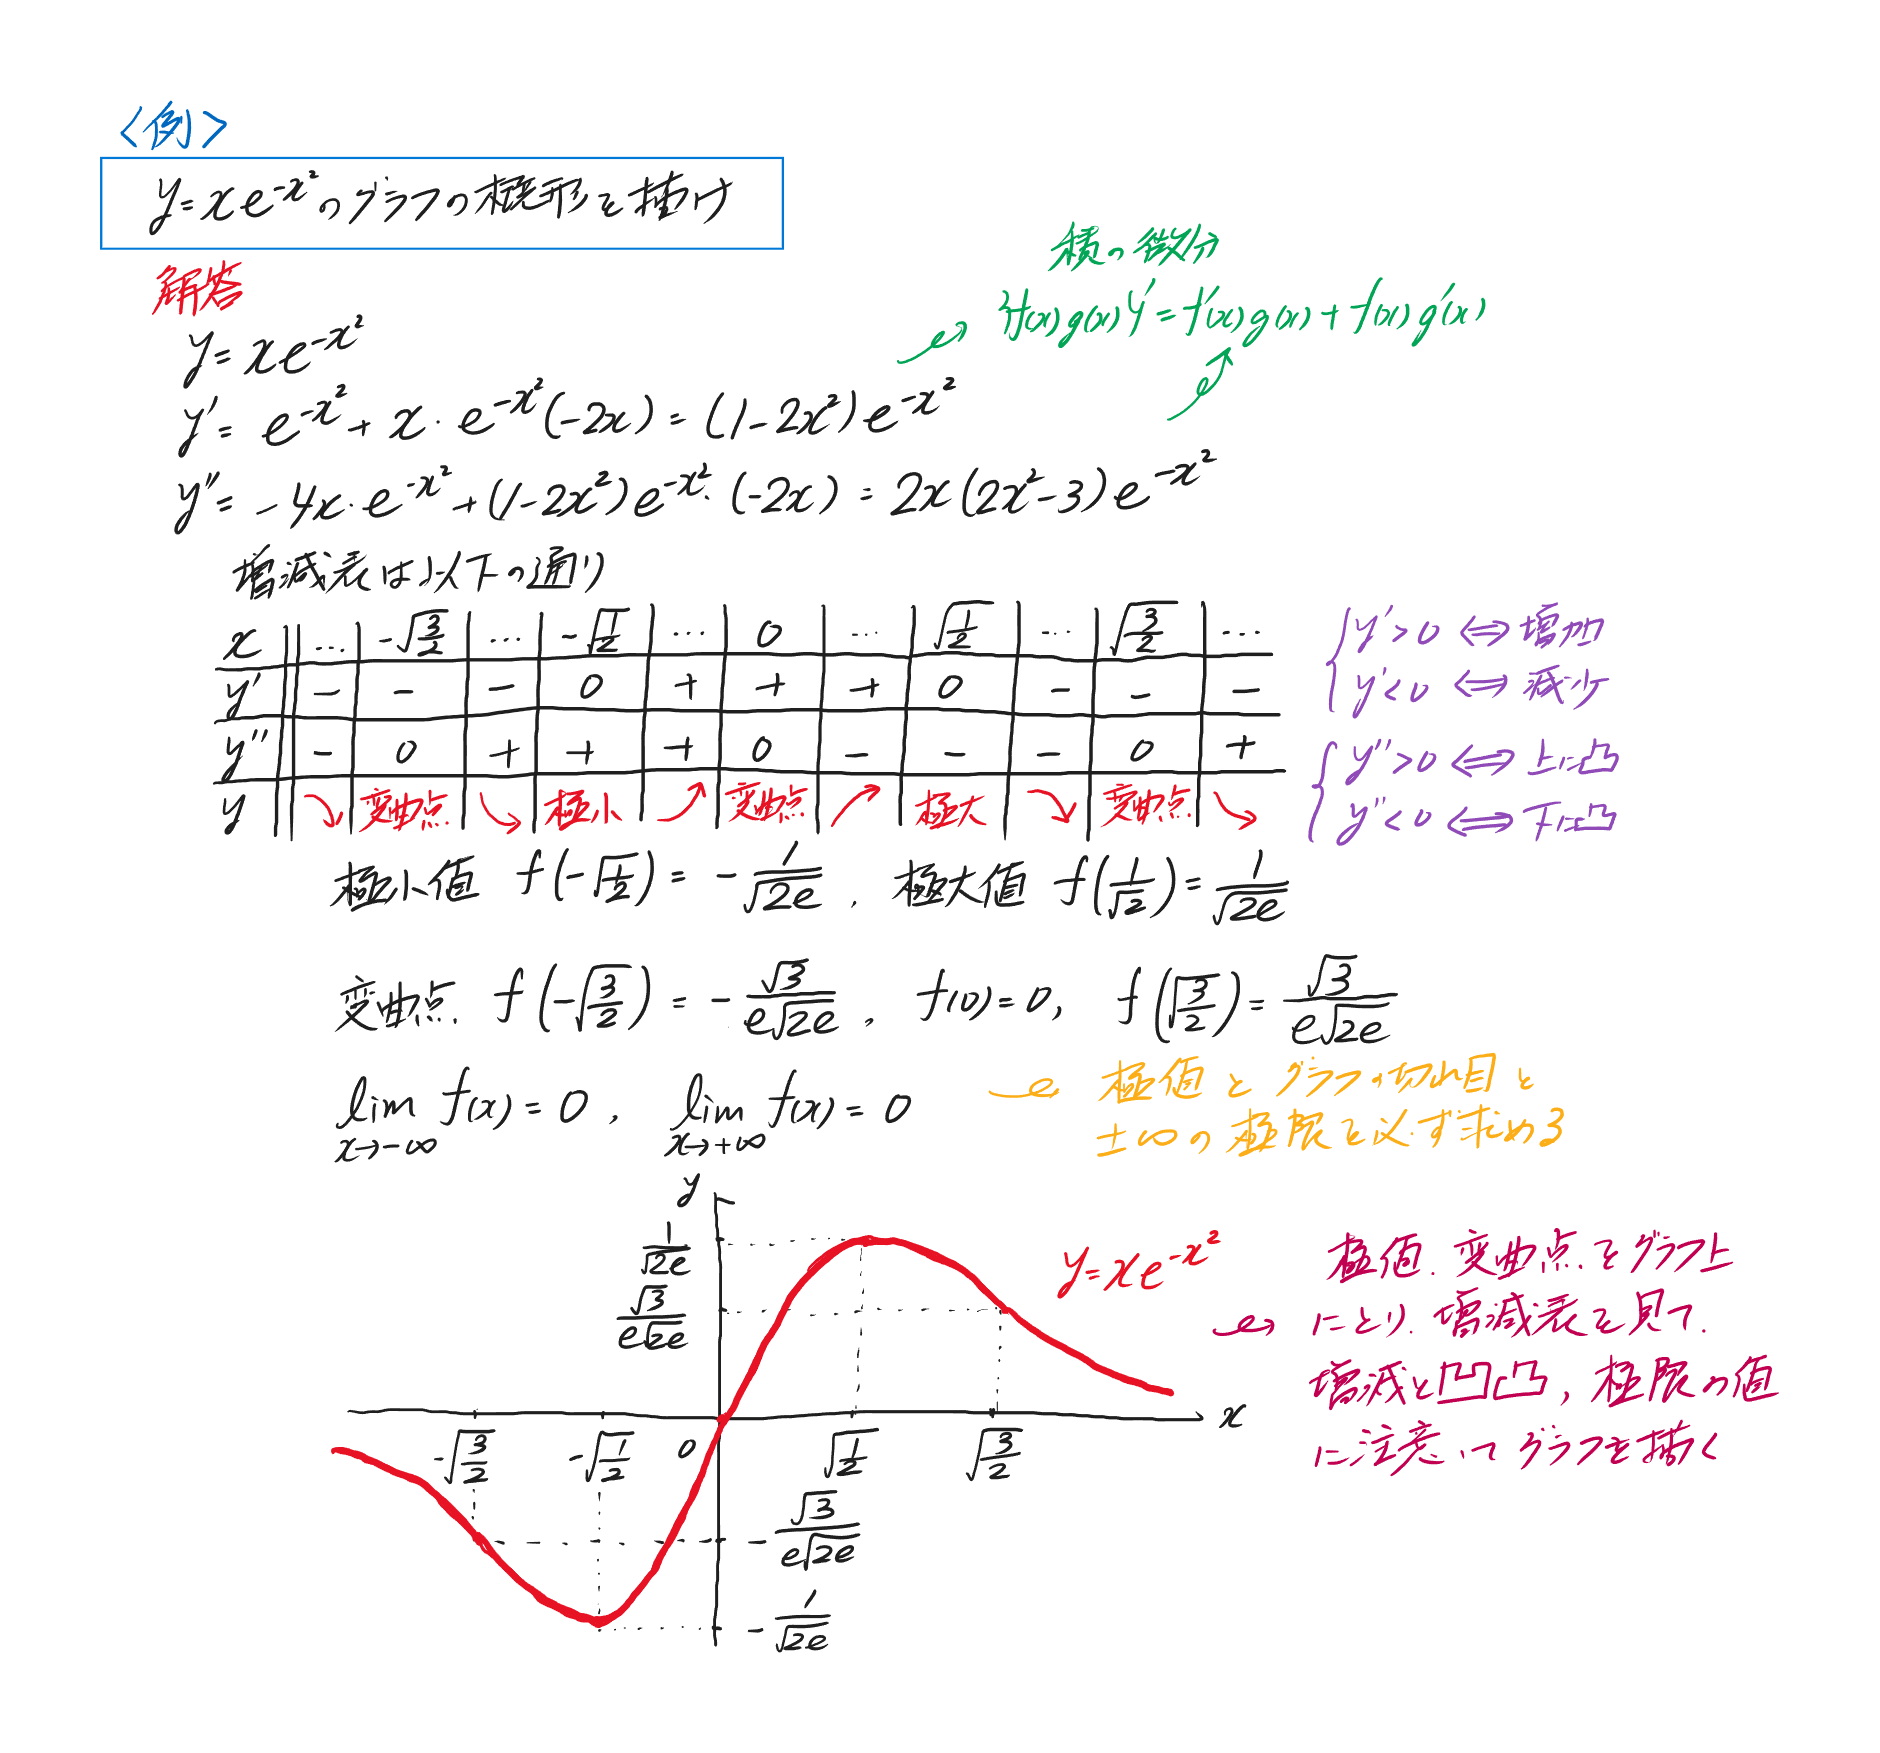 <例>
y=xe^{-x^2}のグラフの概形を描け
解答
積の微分
{f(x)g(x)}'=f'(x)g(x)+f(x)g'(x)
y=xe^{-x^2}
y'=e^{-x^2}+x·e^{-x^2}(-2x)=(1-2x^2)e^{-x^2}
y''=-4x·e^{-x^2}+(1-2x^2)e^{-x^2}·(-2x)=2x(2x^2-3)e^{-x^2}
増減表は以下の通り
x … -√(3/2) … -√(1/2) … 0 … √(1/2) … √(3/2) …
y' - - - 0 + + + 0 - - -
y'' - 0 + + + 0 - - - 0 +
y ↘ 変曲点 ↘ 極小 ↗ 変曲点 ↗ 極大 ↘ 変曲点 ↘
y'>0 ⇔ 増加
y'<0 ⇔ 減少
y''>0 ⇔ 上に凸
y''<0 ⇔ 下に凸
極小値 f(-√(1/2))=-1/√(2e), 極大値 f(1/√2)=1/√(2e)
変曲点 f(-√(3/2))=-√3/(e√(2e)), f(0)=0, f(√(3/2))=√3/(e√(2e))
lim_{x→-∞} f(x)=0, lim_{x→+∞} f(x)=0
極値とグラフの切れ目と
±∞の極限を必ず求める
y
1/√(2e)
√3/(e√(2e))
y=xe^{-x^2}
x
-√(3/2) -√(1/2) 0 √(1/2) √(3/2)
-√3/(e√(2e))
-1/√(2e)
極値、変曲点をグラフ上
にとり、増減表を見て、
増減と凹凸, 極限の値
に注意してグラフを描く